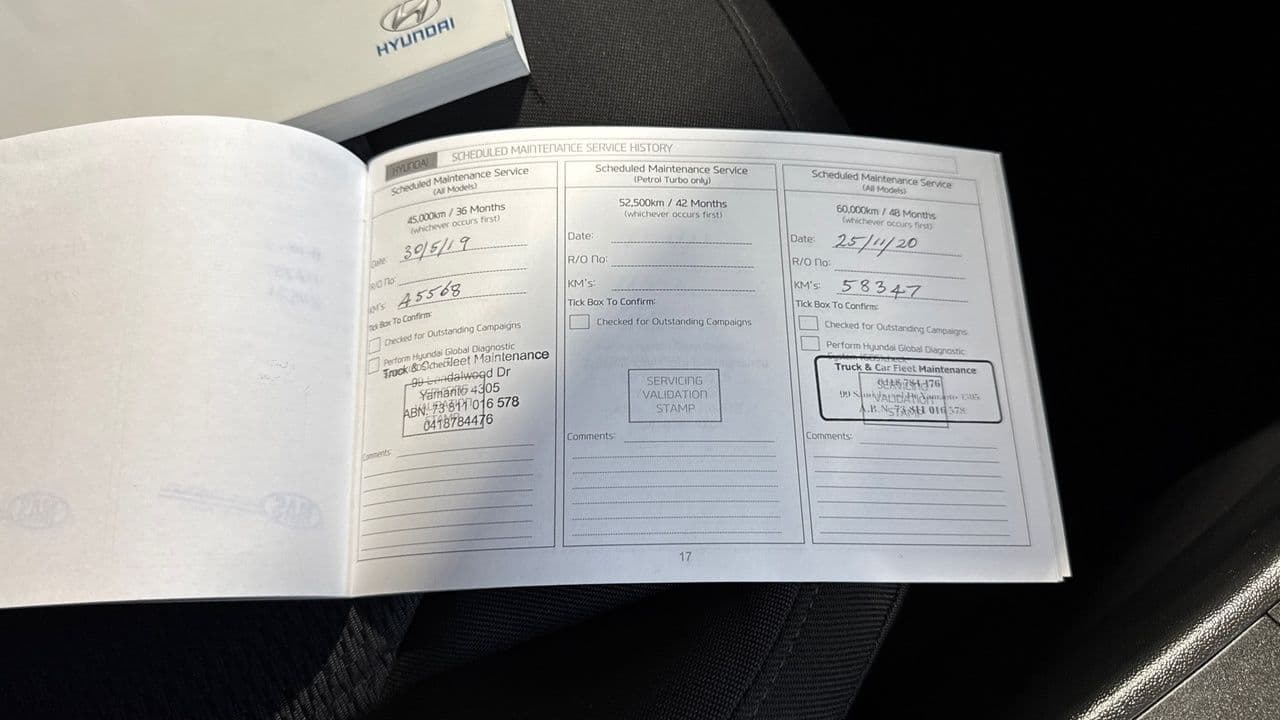 HYUNDAI
HYUNDAI SCHEDULED MAINTENANCE SERVICE HISTORY
Scheduled Maintenance Service
(All Models)
45,000km / 36 Months
(whichever occurs first)
Date: 30/5/19
R/O No:
KM's: 45568
Tick Box To Confirm:
Checked for Outstanding Campaigns
Perform Hyundai Global Diagnostic
Truck & Fleet Maintenance
99 Sandalwood Dr
Yamanto 4305
ABN: 73 811 016 578
0418784476
Comments:
Scheduled Maintenance Service
(Petrol Turbo only)
52,500km / 42 Months
(whichever occurs first)
Date:
R/O No:
KM's:
Tick Box To Confirm:
Checked for Outstanding Campaigns
SERVICING
VALIDATION
STAMP
Comments:
Scheduled Maintenance Service
(All Models)
60,000km / 48 Months
(whichever occurs first)
Date: 25/11/20
R/O No:
KM's: 58347
Tick Box To Confirm:
Checked for Outstanding Campaigns
Perform Hyundai Global Diagnostic
Truck & Car Fleet Maintenance
0418 784 476
99 Sandalwood Dr Yamanto 4305
A.B.N. 73 811 016 578
SERVICING
VALIDATION
STAMP
Comments:
17